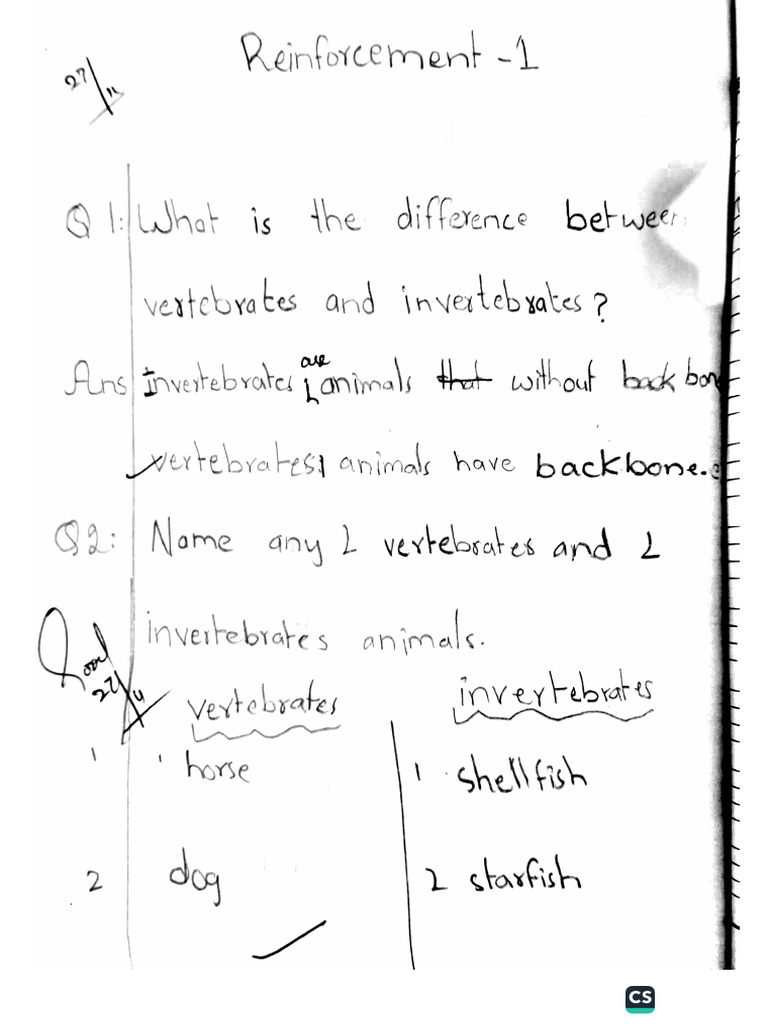 Reinforcement - 1
27/11
Q 1: What is the difference between
vertebrates and invertebrates?
Ans Invertebrates are animals that without back bon
vertebrates animals have backbone.
Q2: Name any 2 vertebrates and 2
invertebrates animals.
Good
27/11
vertebrates invertebrates
1 horse 1 shellfish
2 dog 2 starfish
CS